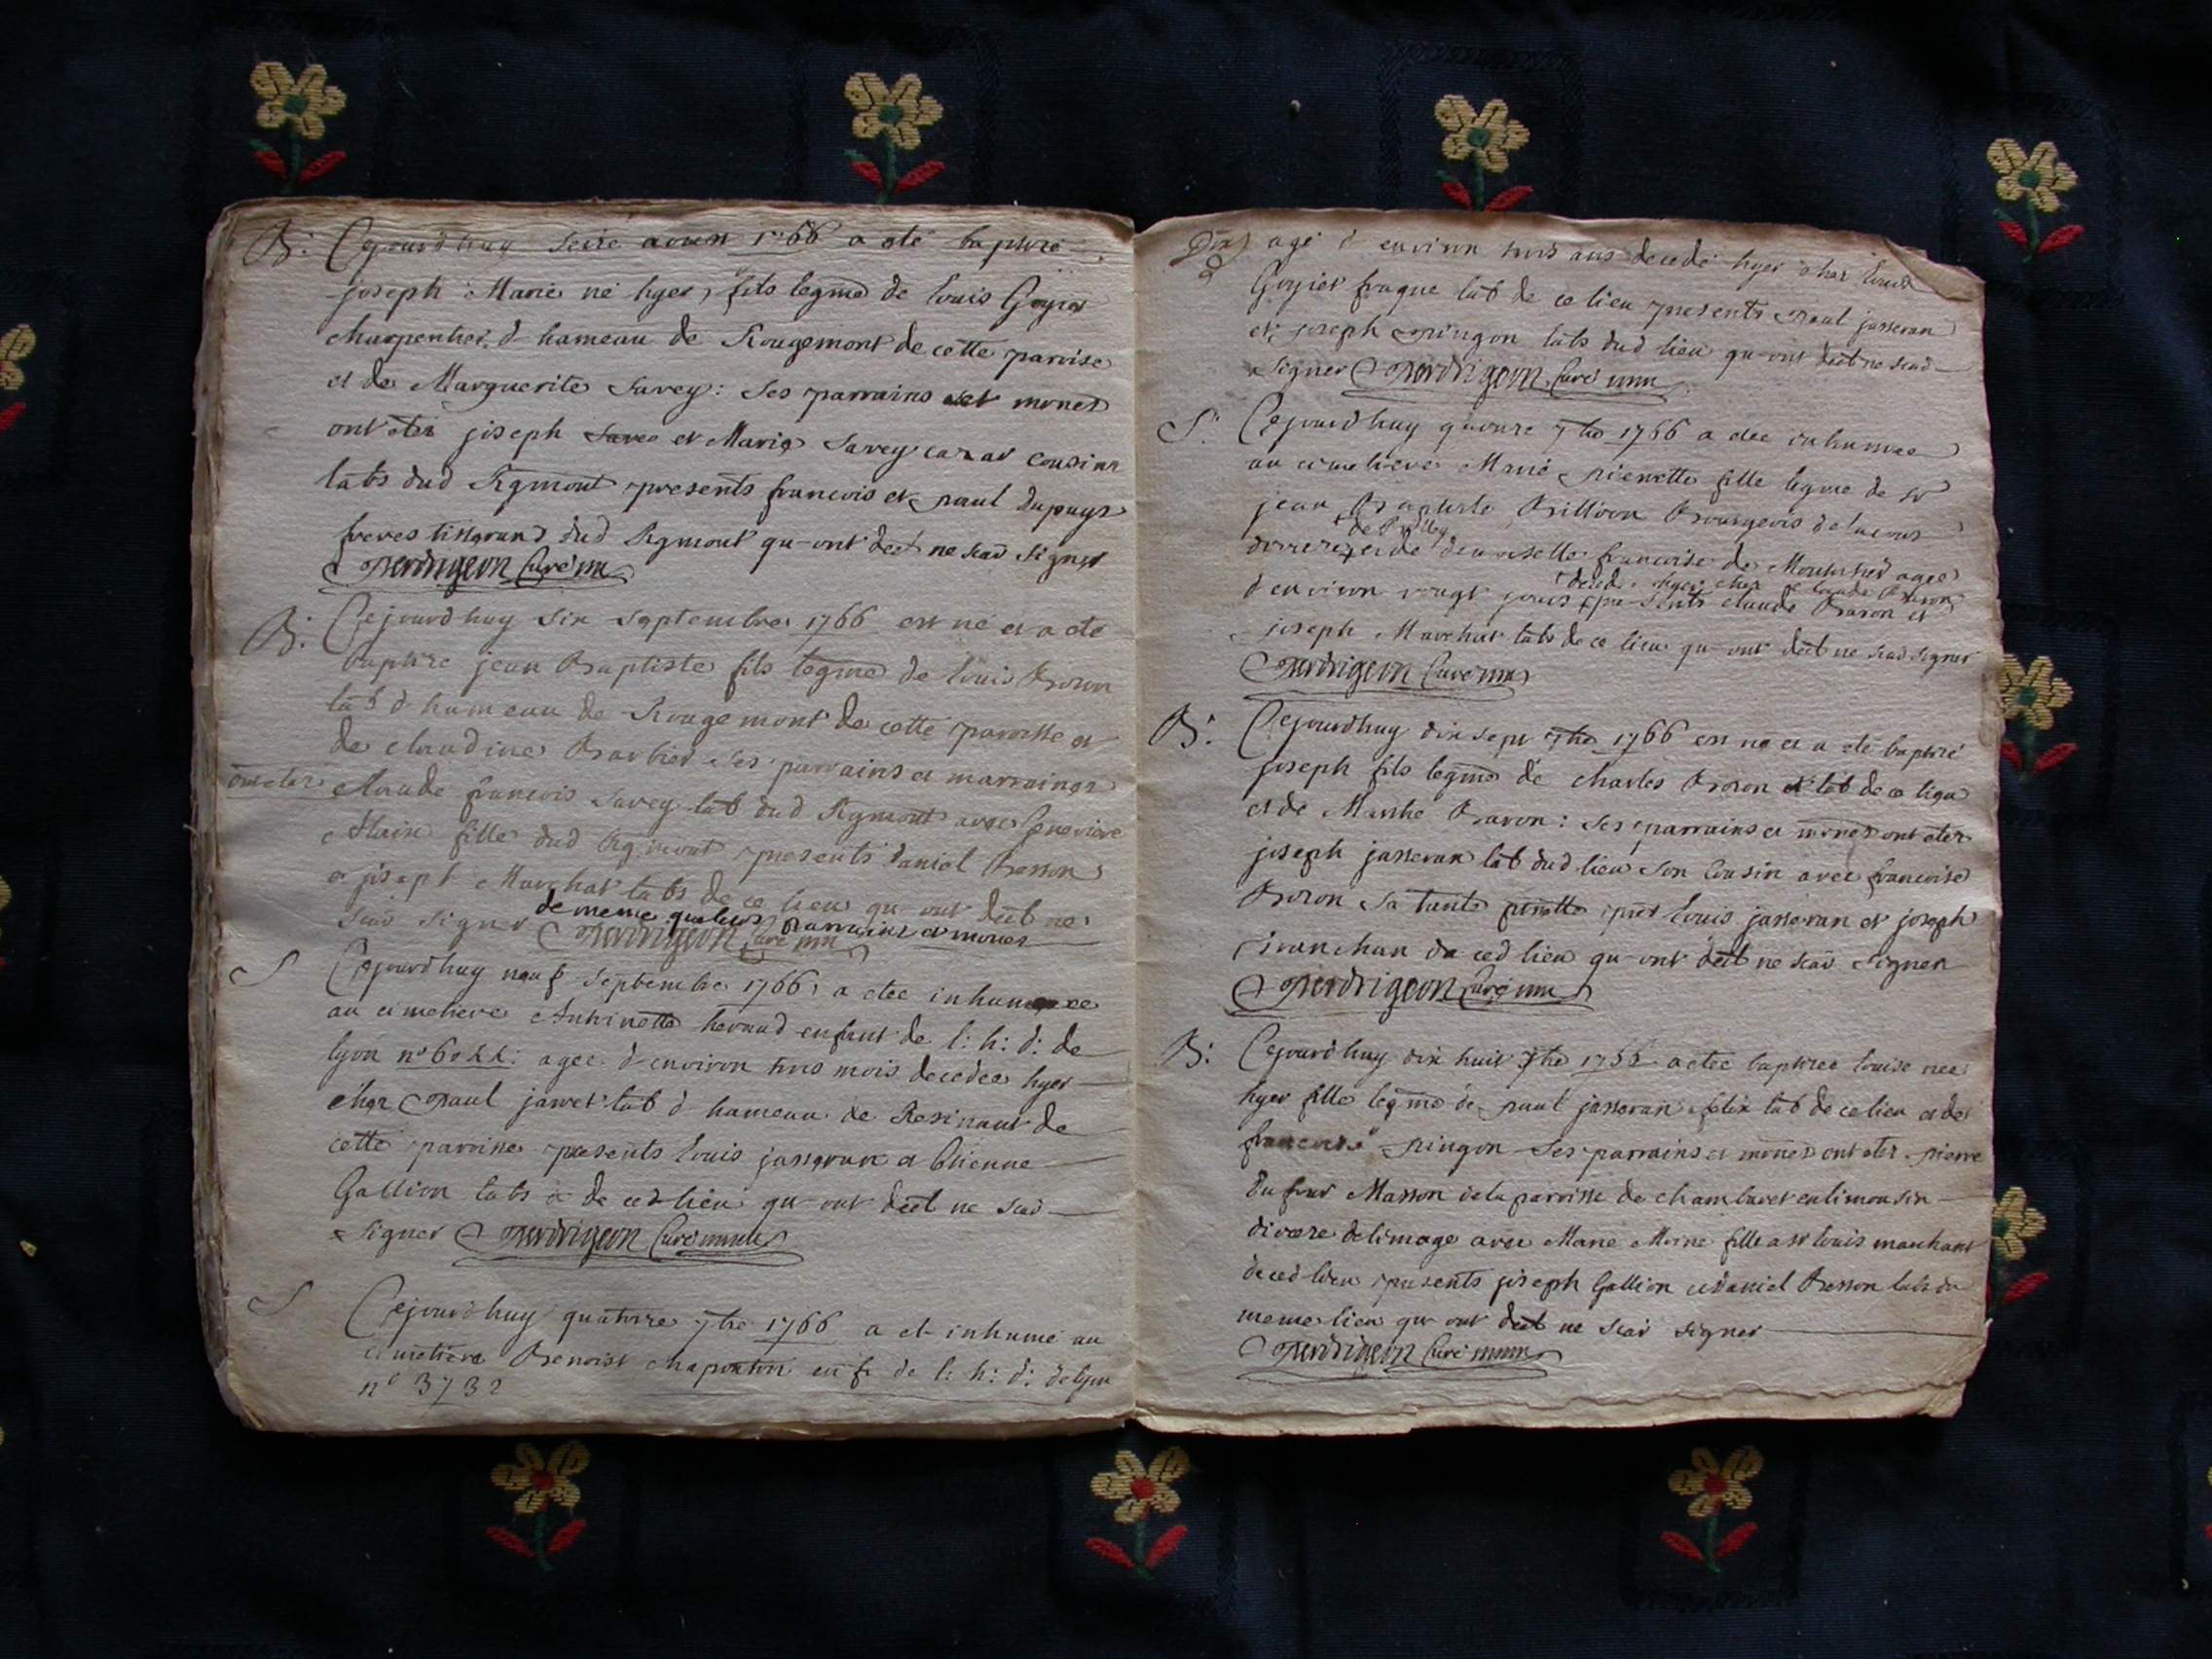 B: Cejourdhuy seize aoust 1766 a été baptizé
joseph Marie né hyer, fils legme de louis Goyet
charpentier d hameau de Rougemont de cette paroisse
et de Marguerite Savey: Ses parrains et mones
ont étéz joseph Savee et Marie Savey cousins
labs dud Rgmont presents francois et paul dupuys
freres tisserand dud Rgmont qu-ont deêt ne scav signer
Perdrigeon Curé mm
B: Cejourdhuy six septembre 1766 est né et a été
baptize jean Baptiste fils legme de louis Boron
lab d hameau de Rougemont de cette paroisse et
de claudine Barbier ses parrains et marraines
ont étéz claude francois Savey lab dud Rgmont avec Geneviève
fille dud Rgmont presents daniel Besson
et joseph Marchat labs de ce lieu qu-ont deêt ne
scav signer de meme que leurs parrains et mones
Perdrigeon Curé mm
S Cejourdhuy neuf septembre 1766 a étée inhumée
au cimetiere Antoinette heraud enfant de l: h: d: de
lyon n° agée d environ trois mois decedee hyer
chez paul jannet lab d hameau de Resinaut de
cette paroisse presents louis jasseran et Etienne
Gallion labs de ced lieu qu ont deêt ne scav
signer Perdrigeon Curé mm
S Cejourdhuy quatorze 7bre 1766 a et inhumé au
cimetiere Benoist chaponton enft de l: h: d: de lyon
n° 3732
agé d environ trois ans decedé hyer chez louis
Goyiet lab de ce lieu presents paul jasseran
et joseph pingon labs dud lieu qu-ont deêt ne scav
signer Perdrigeon Curé mm
S: Cejourdhuy quatorze 7bre 1766 a étée inhumée
au cimetiere Marie pierrette fille legme de sr
jean Baptiste Brillion Bourgeois de
et de demoiselle francoise de agée
decede hyer chez claude Baron
d environ vingt jours presents claude Baron et
joseph Marchat labs de ce lieu qu-ont deêt ne scav signer
Perdrigeon Curé mm
B: Cejourdhuy dix sept 7bre 1766 est né et a été baptizé
joseph fils legme de charles Boron lab de ce lieu
et de Marthe Baron: Ses parrains et mones ont étéz
joseph jasseran lab dud lieu son cousin avec francoise
Boron Sa tante prnts louis jasseran et joseph
de ced lieu qu-ont deêt ne scav signer
Perdrigeon Curé mm
B: Cejourdhuy dix huit 7bre 1766 a étée baptizée louise née
hyer fille legme de paul jasseran félix lab de ce lieu et de
francoise pingon Ses parrains et mones ont étéz pierre
du four Masson de la paroisse de chamburet en limousin
de limoge avec Marie Moine fille a sr louis marchant
de ced lieu presents joseph Gallion et daniel Besson labs du
meme lieu qu ont deêt ne scav signer
Perdrigeon Curé mm